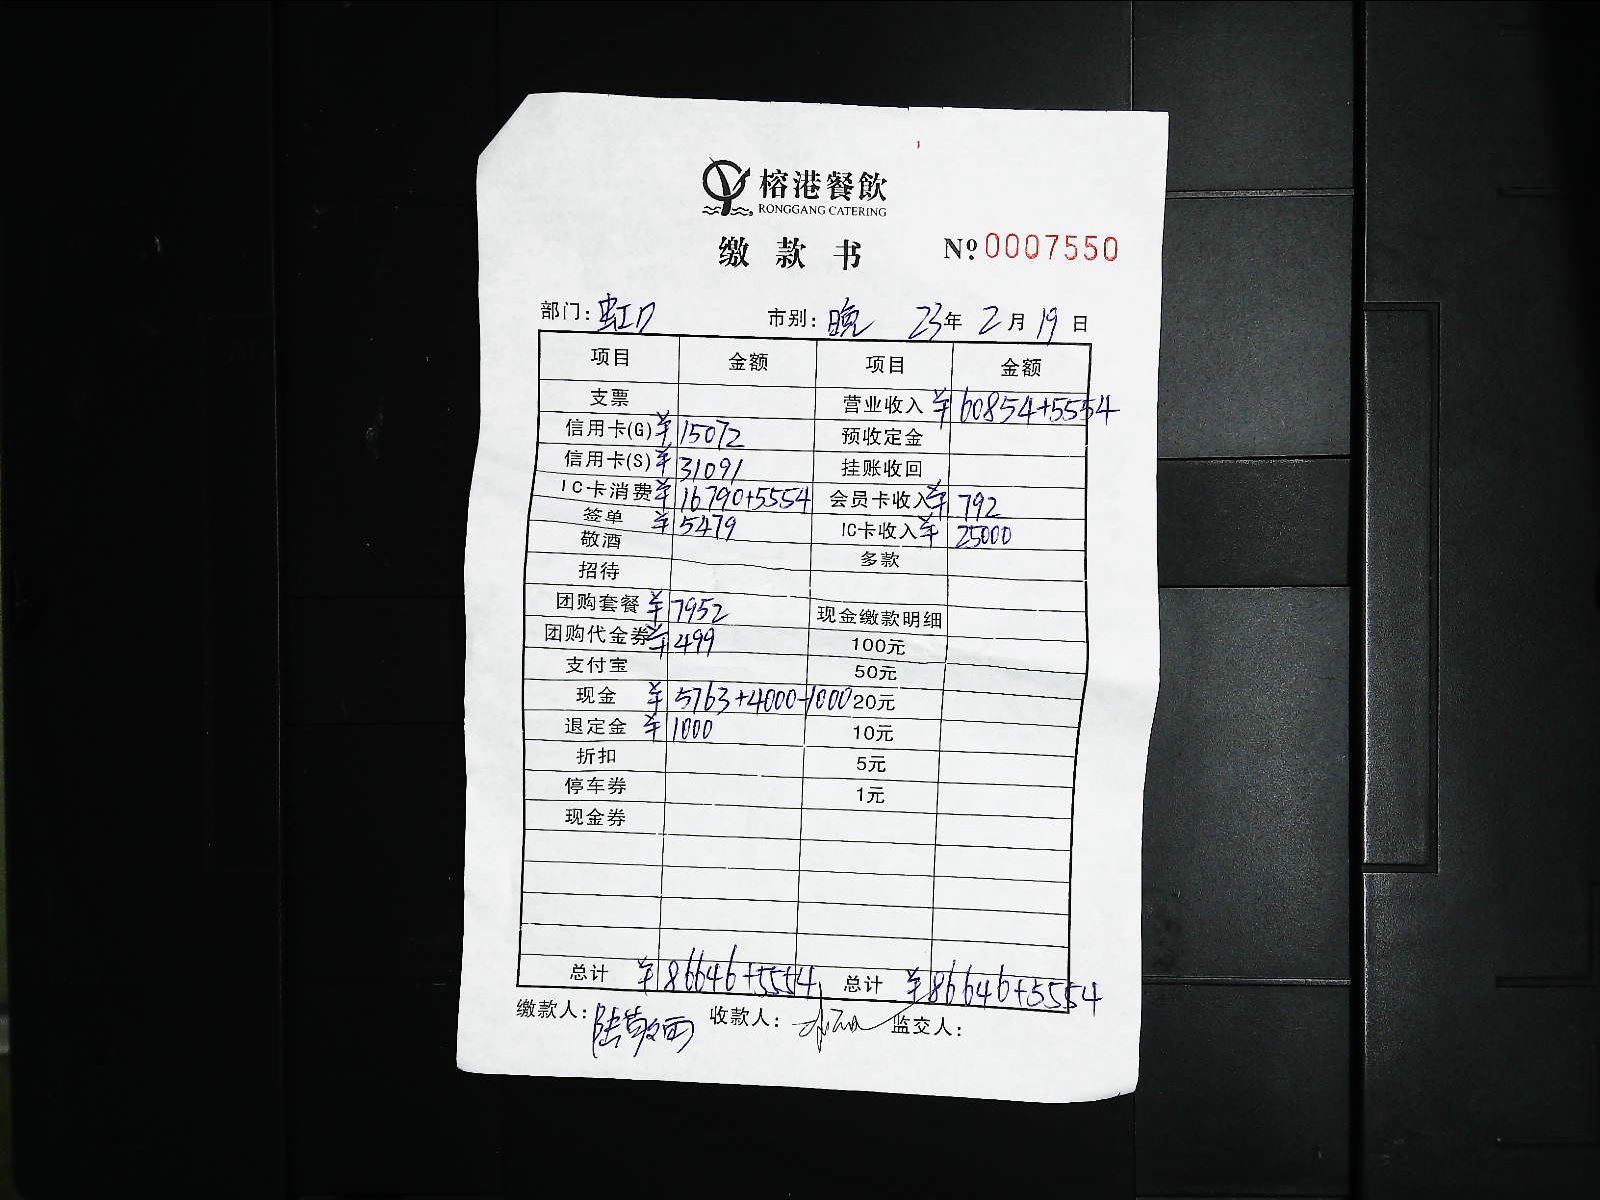 榕港餐飲
RONGGANG CATERING
缴款书 №0007550
部门：虹口 市别：晚 23年2月19日
项目 金额 项目 金额
支票 营业收入 ¥60854+5554
信用卡(G) ¥15072 预收定金
信用卡(S) ¥31091 挂账收回
IC卡消费 ¥16790+5554 会员卡收入 ¥792
签单 ¥5479 IC卡收入 ¥25000
敬酒 多款
招待
团购套餐 ¥7952 现金缴款明细
团购代金券 ¥499 100元
支付宝 50元
现金 ¥5763+4000-1000 20元
退定金 ¥1000 10元
折扣 5元
停车券 1元
现金券
总计 ¥86646+5554 总计 ¥86646+5554
缴款人：陆敬西 收款人： 监交人：